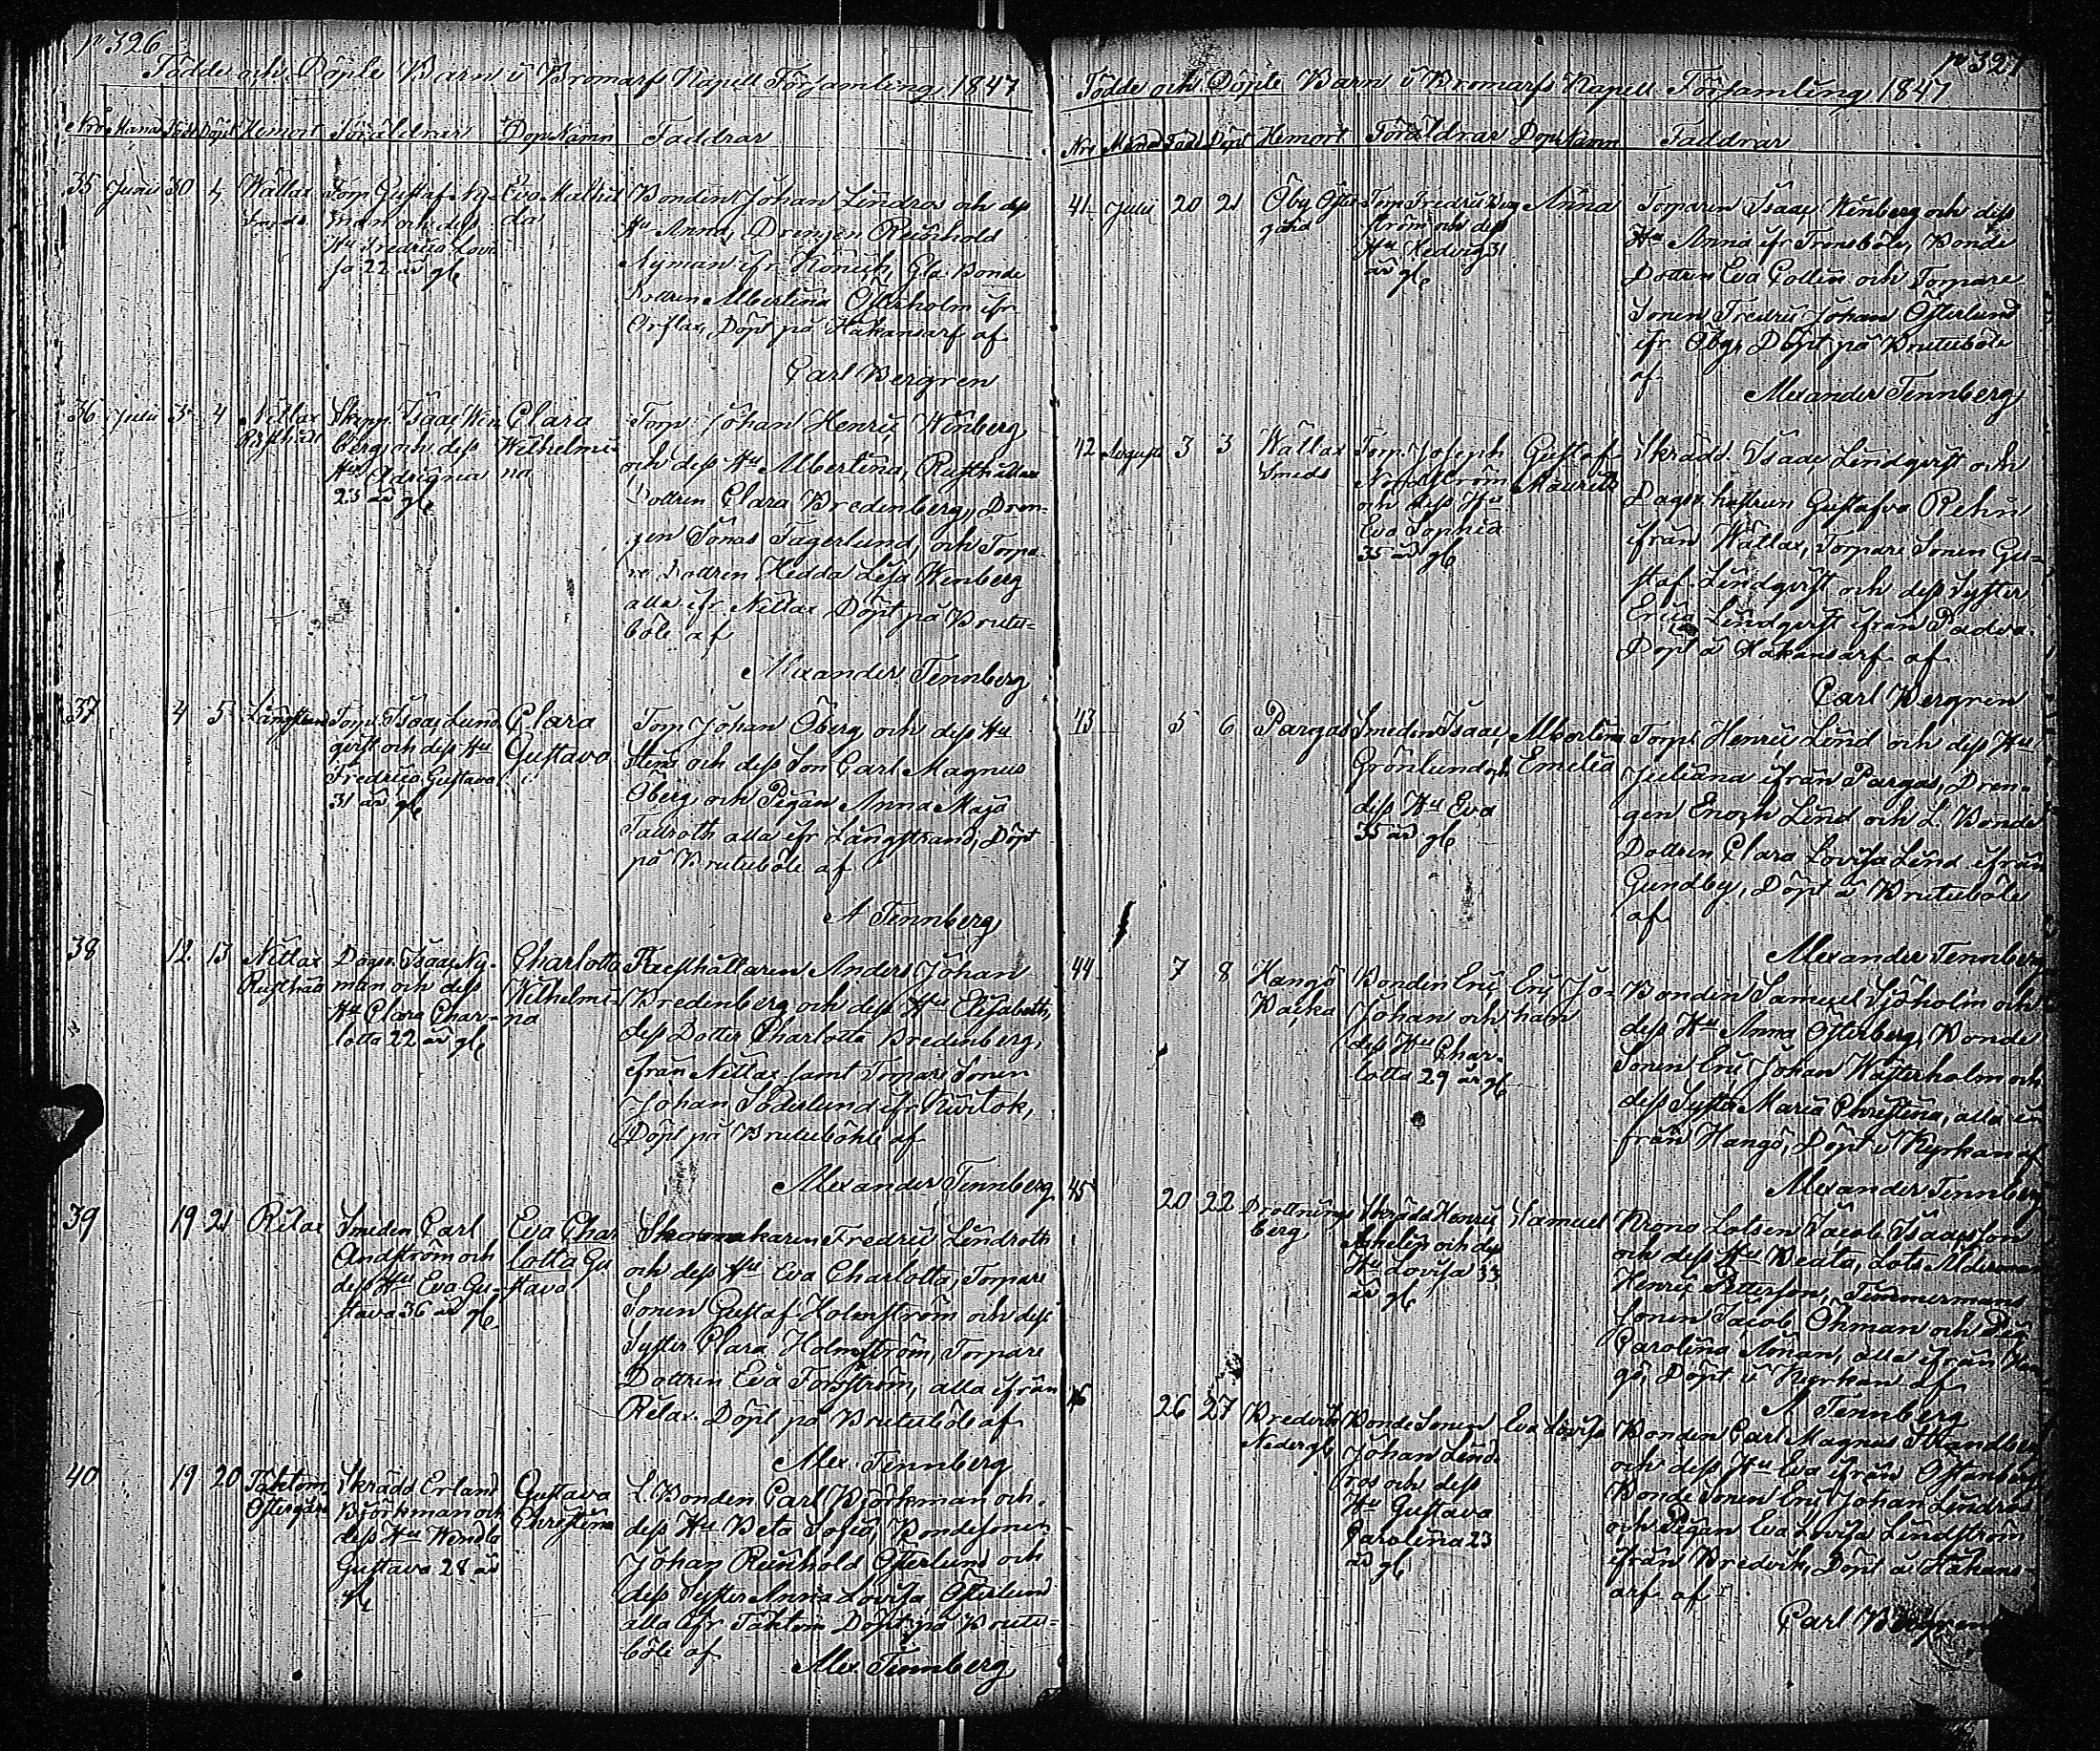 p 326
Födde och Döpte Barn i Bromarfs Kapell Församling 1847
Nro Månad Född Döpt Hemort Föräldrar Dop Namn Faddrar
35 Juni 30 4 Wättlax Torp Gustaf Ny- Eva Mathil Bonden Johan Lindros och dess
Smeds man och dess da Hu Anna, Drengen Reinhold
Hu Fredrica Lovi Nyman ifr
sa 22 år gl Bonde
Dottren Albertina Österholm ifr
Döpt på Håkansarf af
Carl Bergren
36 Julii 3 4 Nitlax Isaac Wen Clara Torp Johan Henric Wenberg
Rusthåll berg och dess Wilhelmi- och dess Hu Albertina, Rusthållare
Hu na Dottren Clara Bredenberg, Dren-
23 år gl gen Jonas Fagerlund, och Torpa-
re Dottren Hedda Lisa Wenberg
alla ifr Nitlax Döpt på Brute-
böle af
Alexander Tennberg
37 4 5 Långstrand Torp. Isaac Lind Clara Torp Johan Öberg och dess Hu
qvist och dess Hu Gustava Stina och dess Son Carl Magnus
Fredrica Gustava Öberg och Pigan Anna Maja
31 år gl Tallroth alla ifr Långstrand, Döpt
på Bruteböle af
A Tennberg
38 12 13 Nitlax Dagsv. Isaac Ny- Charlotta Rusthållaren Anders Johan
Rusthåll man och dess Wilhelmi- Bredenberg och dess Hu Elisabeth,
Hu Clara Char- na dess Dotter Charlotta Bredenberg,
lotta 22 år gl ifrån Nitlax samt Torpare Sonen
Johan Söderlund ifr
Döpt på Bruteböhle af
Alexander Tennberg
39 19 21 Rilax Smeden Carl Eva Char Skomakaren Fredric Lindroth
Andström och lotta Gu och dess Hu Eva Charlotta, Torpare
dess Hu Eva Gu- stava Sonen Gustaf Holmström och dess
stava 36 år gl Syster Clara Holmström, Torpare
Dottren Eva Forsström, alla ifrån
Rilax. Döpt på Bruteböle af
Alex Tennberg
40 19 20 Täktom Skrädd Erland Gustava L. Bonden Carl Björkman och
Östergård Björkman och Christina dess Hu Beta Sofia, Bondesonen
dess Hu Wendla Johan Reinhold Österlund och
Gustava 28 år dess Syster Anna Lovisa Österlund
gl alla ifr Täktom Döpt på Brute-
böle af Alex Tennberg
p 327
Födde och Döpte Barn i Bromarfs Kapell Församling 1847
Nro Månad Född Döpt Hemort Föräldrar Dop Namn Faddrar
41 Julii 20 21 Öby Öster Torp Fredric Berg Anna Torparen Isaac Wenberg och dess
gård ström och dess Hu Anna ifr Bonde
Hu Hedvig 31 Dottren Eva Collin och Torpare
år gl Sonen Fredric Johan Österlund
ifr Öby, Döpt på Bruteböle
af
Alexander Tennberg
42 August 3 3 Wättlax Torp Joseph Gustaf Skrädd. Isaac Lindqvist och
Smeds Nordström Maurits Dagsv. hustrun Gustafva Rehn
och dess Hu ifrån Wättlax, Torpare Sonen Gu-
Eva Sophia staf Lindqvist och dess Syster
35 år gl Erica Lindqvist ifrån Padva.
Döpt å Håkansarf af
Carl Bergren
43 5 6 Pargas Smeden Isaac Albertina Torp. Henric Lind och dess Hu
Grönlund och Emelia Juliana ifrån Pargas, Dren-
dess Hu Eva gen Enoch Lind och L. Bonde
35 år gl Dottren Clara Lovisa Lind ifrån
Gundby, Döpt å Bruteböle
af
Alexander Tennberg
44 7 8 Hangö Bonden Eric Eric Jo- Bonden Samuel Sjöholm och
Backa Johan och han dess Hu Anna Österberg, Bonde
dess Hu Char- Sonen Eric Johan Westerholm och
lotta 29 år gl dess Syster Maria Christina, alla i-
från Hangö, Döpt i Kyrkan af
Alexander Tennberg
45 20 22 Drottning Skrädd Henric Samuel Krono Lotsen Jacob Isaacsson
berg Askelin och dess och dess Hu Beata, Lots Ålderman
Hu Lovisa 33 Henric Petterson, Timmermans
år gl Sonen Jacob Öhman och Pig
Carolina alla ifrån Han
gö, Döpt i Kyrkan af
A Tennberg
46 26 27 Bredvik Bonde Sonen Eva Lovisa Bonden Carl Magnus Strandberg
Nedergl Johan Lind- och dess Hu Eva ifrån Östanberg
ros och dess Bonde Sonen Eric Johan Lindros
Hu Gustava och Pigan Eva Lovisa Lindström
Carolina 23 ifrån Bredvik, Döpt å Håkans-
år gl arf af
Carl Bergren